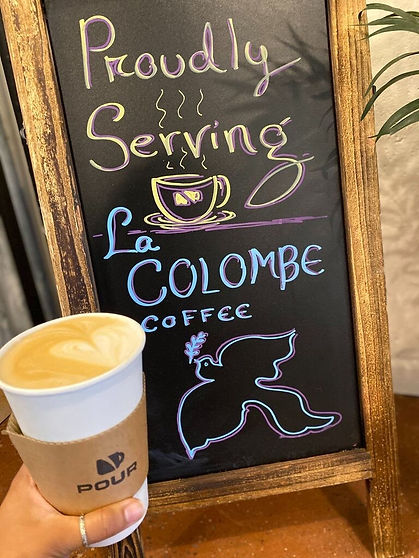 Proudly
Serving
La
COLOMBE
COFFEE
POUR